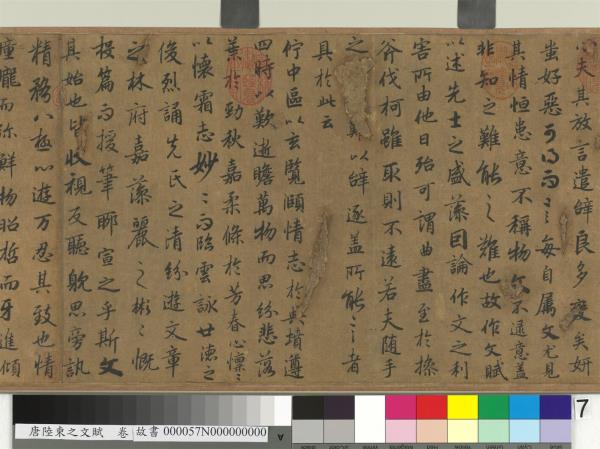 心夫其放言遣辭良多變矣妍
蚩好惡可得而言每自属文尤見
其情恒患意不稱物文不逮意盖
非知之難能之難也故作文賦
以述先士之盛藻因論作文之利
害所由他日殆可謂曲盡至於操
斧伐柯雖取則不遠若夫随手
之難以辞逐盖所能言者
具於此云
佇中區以玄覽頤情志於典墳遵
四時以歎逝瞻萬物而思紛悲落
葉於勁秋嘉柔條於芳春心懔〻
以懷霜志妙〻而臨雲詠世德之
俊烈誦先民之清紛遊文章
之林府嘉藻麗之彬〻慨
投篇而援筆聊宣之乎斯文
其始也皆收視反聽耽思旁訊
精務八極心遊万忍其致也情
曈曨而弥鮮物昭晢而互進傾
唐陸柬之文賦 卷 故書 000057N000000000
A
7